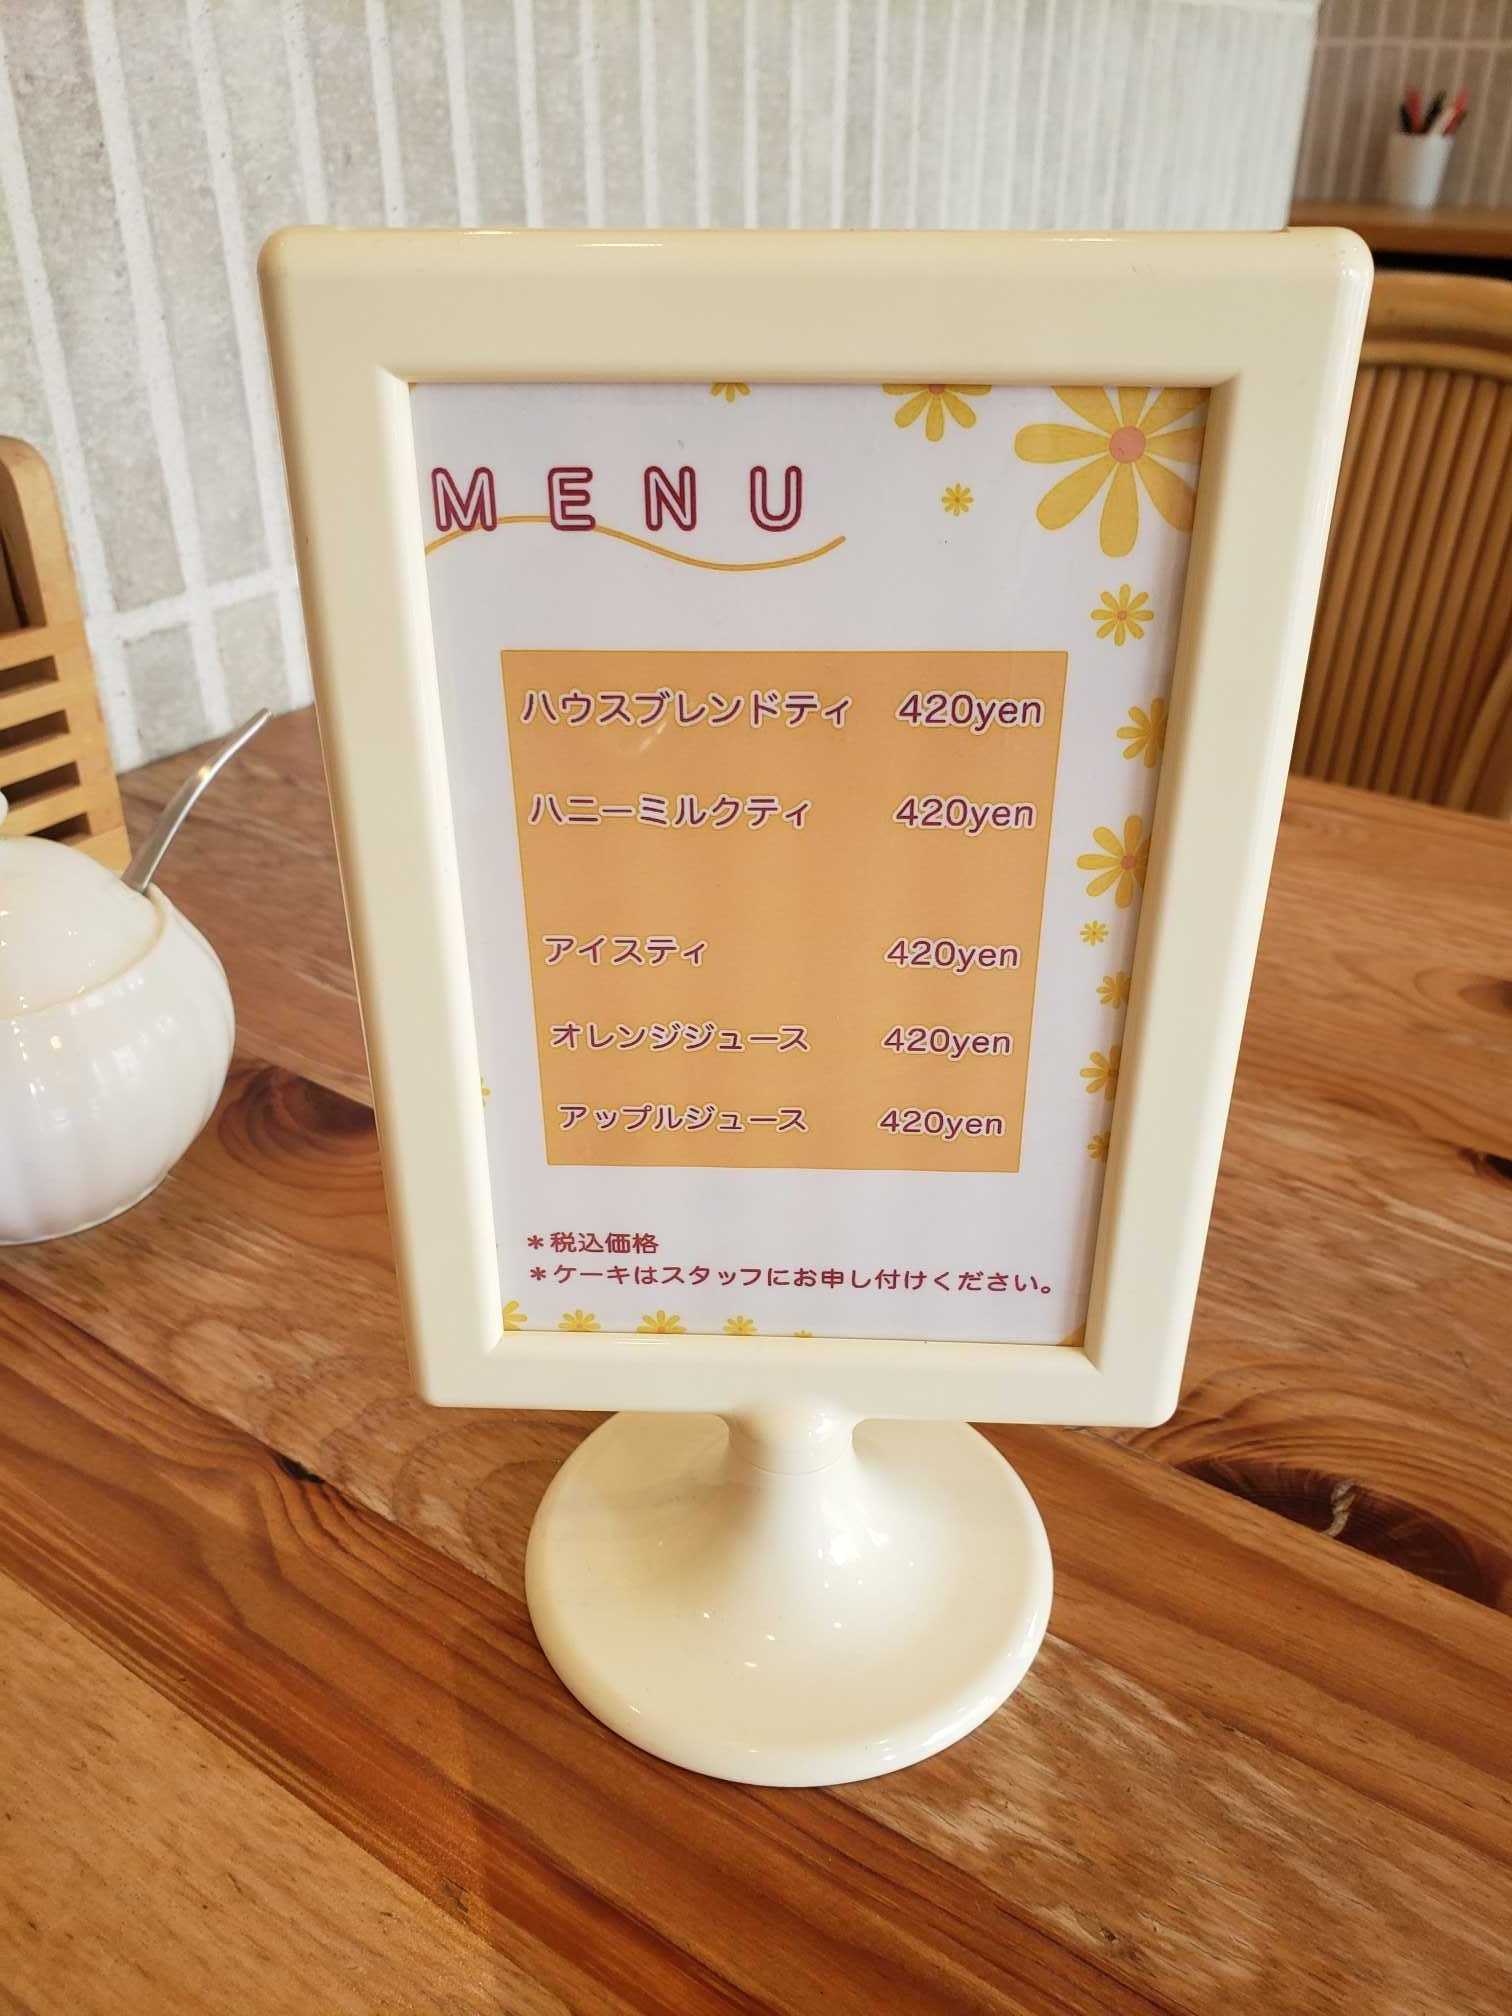 MENU
ハウスブレンドティ 420yen
ハニーミルクティ 420yen
アイスティ 420yen
オレンジジュース 420yen
アップルジュース 420yen
＊税込価格
＊ケーキはスタッフにお申し付けください。